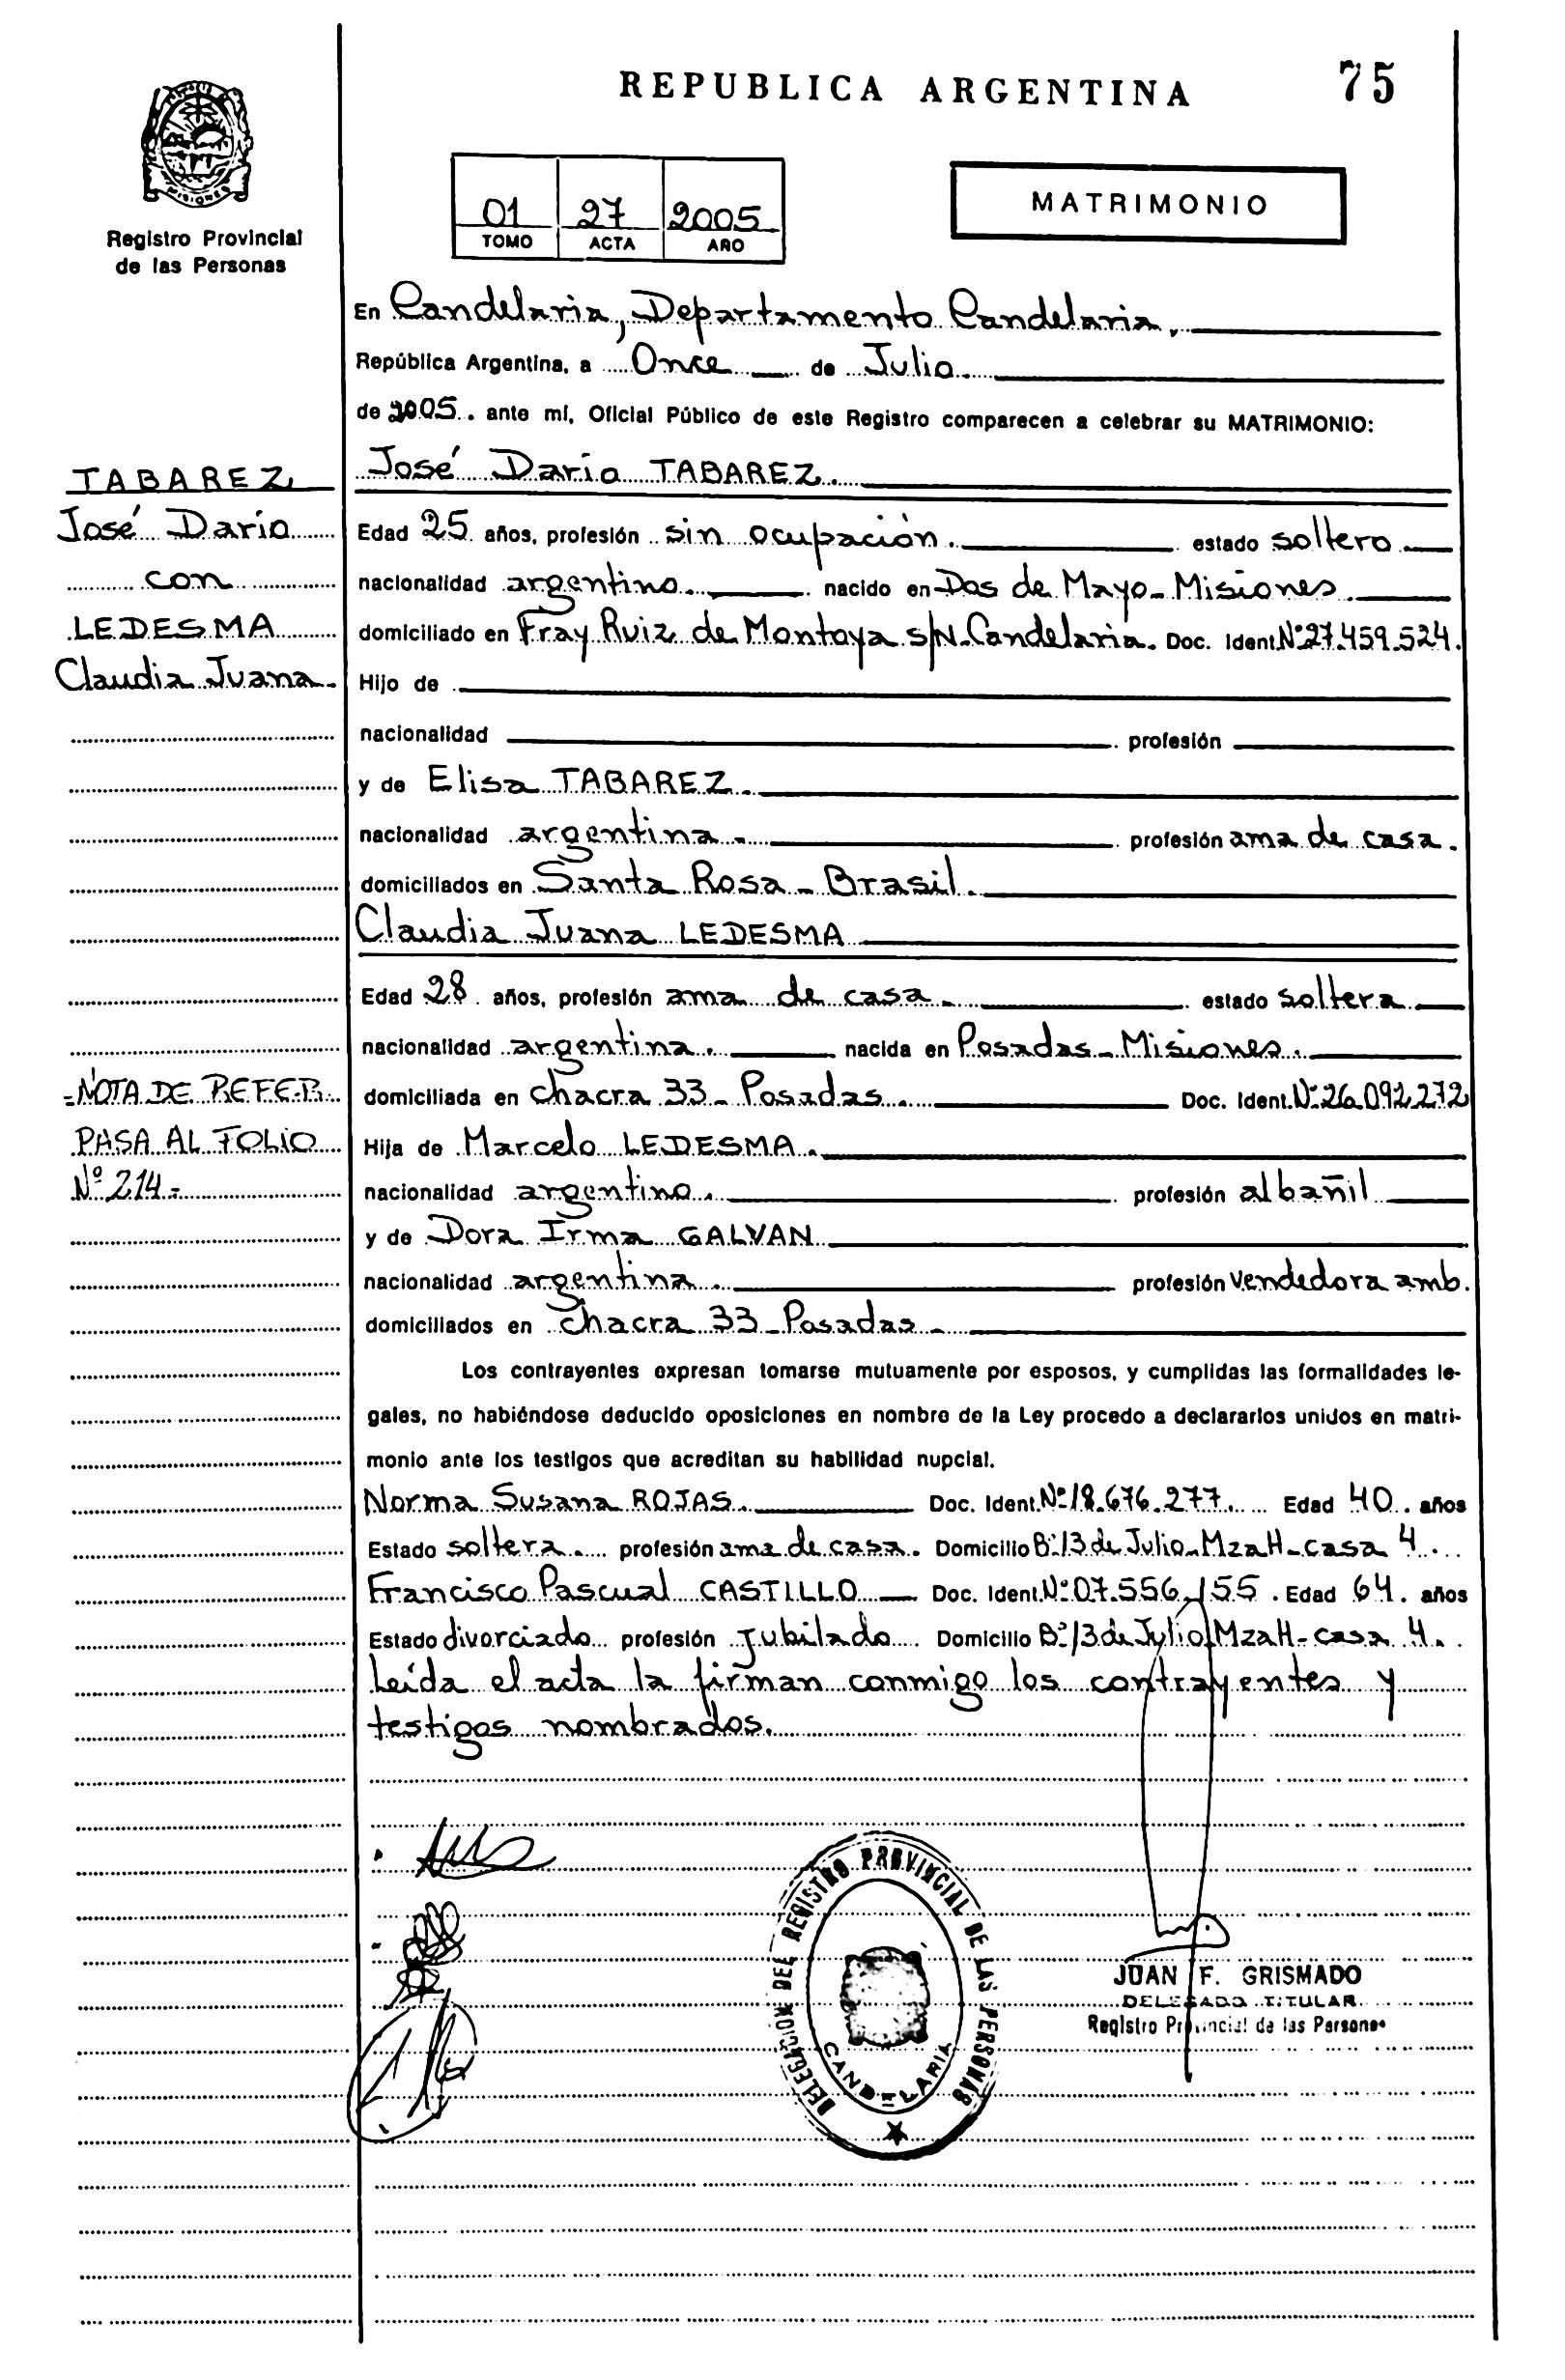 REPUBLICA ARGENTINA 75
MISIONES
Registro Provincial
de las Personas
01 27 2005
TOMO ACTA AÑO
MATRIMONIO
En Candelaria, Departamento Candelaria.
República Argentina, a Once de Julio
de 2005. ante mí, Oficial Público de este Registro comparecen a celebrar su MATRIMONIO:
José Darío TABAREZ.
Edad 25 años, profesión sin ocupación. estado soltero
nacionalidad argentino. nacido en Dos de Mayo - Misiones.
domiciliado en Fray Ruiz de Montoya s/N - Candelaria. Doc. Ident. Nº 27.459.524.
Hijo de
nacionalidad profesión
y de Elisa TABAREZ.
nacionalidad argentina - profesión ama de casa.
domiciliados en Santa Rosa - Brasil.
Claudia Juana LEDESMA
Edad 28 años, profesión ama de casa - estado soltera
nacionalidad argentina. nacida en Posadas - Misiones.
domiciliada en chacra 33 - Posadas. Doc. Ident. Nº 26.092.272
Hija de Marcelo LEDESMA.
nacionalidad argentino. profesión albañil
y de Dora Irma GALVAN
nacionalidad argentina. profesión Vendedora amb.
domiciliados en Chacra 33 - Posadas -
Los contrayentes expresan tomarse mutuamente por esposos, y cumplidas las formalidades le-
gales, no habiéndose deducido oposiciones en nombre de la Ley procedo a declararlos unidos en matri-
monio ante los testigos que acreditan su habilidad nupcial.
Norma Susana ROJAS. Doc. Ident. Nº 18.676.277. Edad 40. años
Estado soltera. profesión ama de casa. Domicilio Bº 13 de Julio - Mza H - casa 4.
Francisco Pascual CASTILLO Doc. Ident. Nº 07.556.155. Edad 64. años
Estado divorciado profesión jubilado Domicilio Bº 13 de Julio Mza H - casa 4.
Leída el acta la firman conmigo los contrayentes y
testigos nombrados.
TABAREZ
José Darío
con
LEDESMA
Claudia Juana.
=NOTA DE REFER.
PASA AL FOLIO
Nº 214=
DELEGACION DEL REGISTRO PROVINCIAL DE LAS PERSONAS
CANDELARIA
JUAN F. GRISMADO
DELEGADO TITULAR
Registro Provincial de las Personas